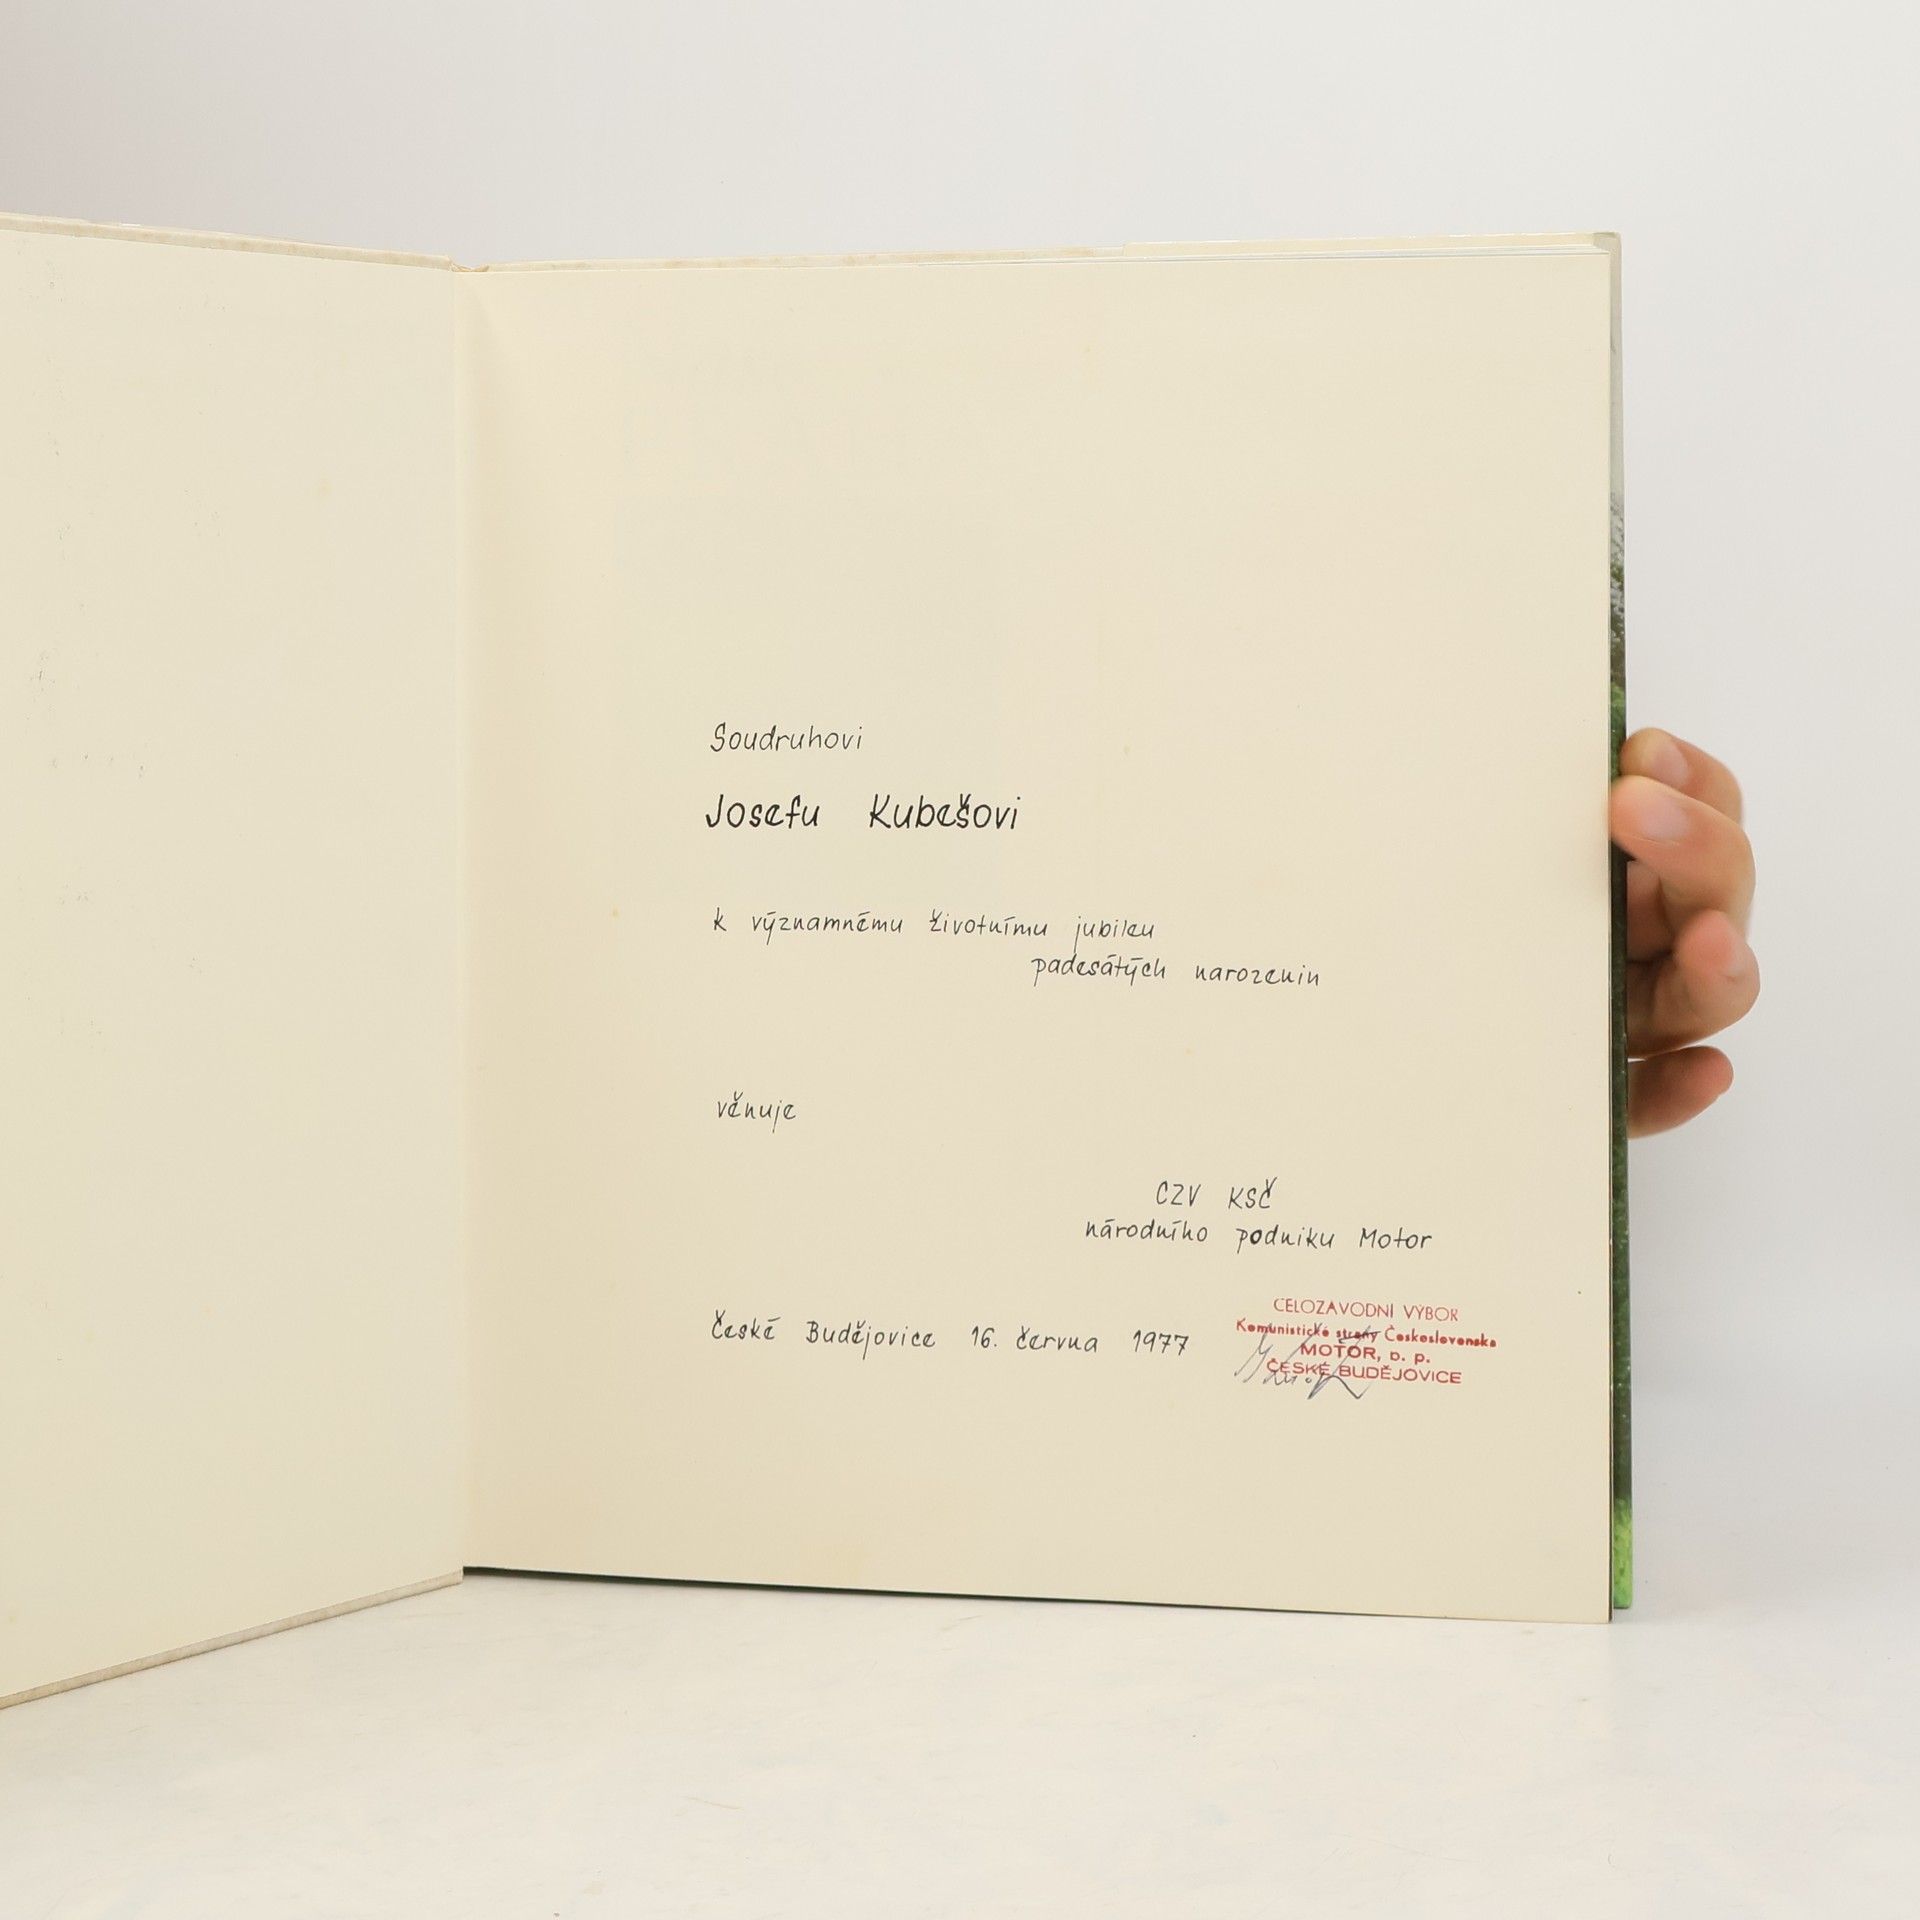 Soudruhovi
Josefu Kubešovi
k významnému životnímu jubileu
padesátých narozenin
věnuje
CZV KSČ
národního podniku Motor
České Budějovice 16. června 1977
CELOZÁVODNÍ VÝBOR
Komunistické strany Československa
MOTOR, n. p.
ČESKÉ BUDĚJOVICE